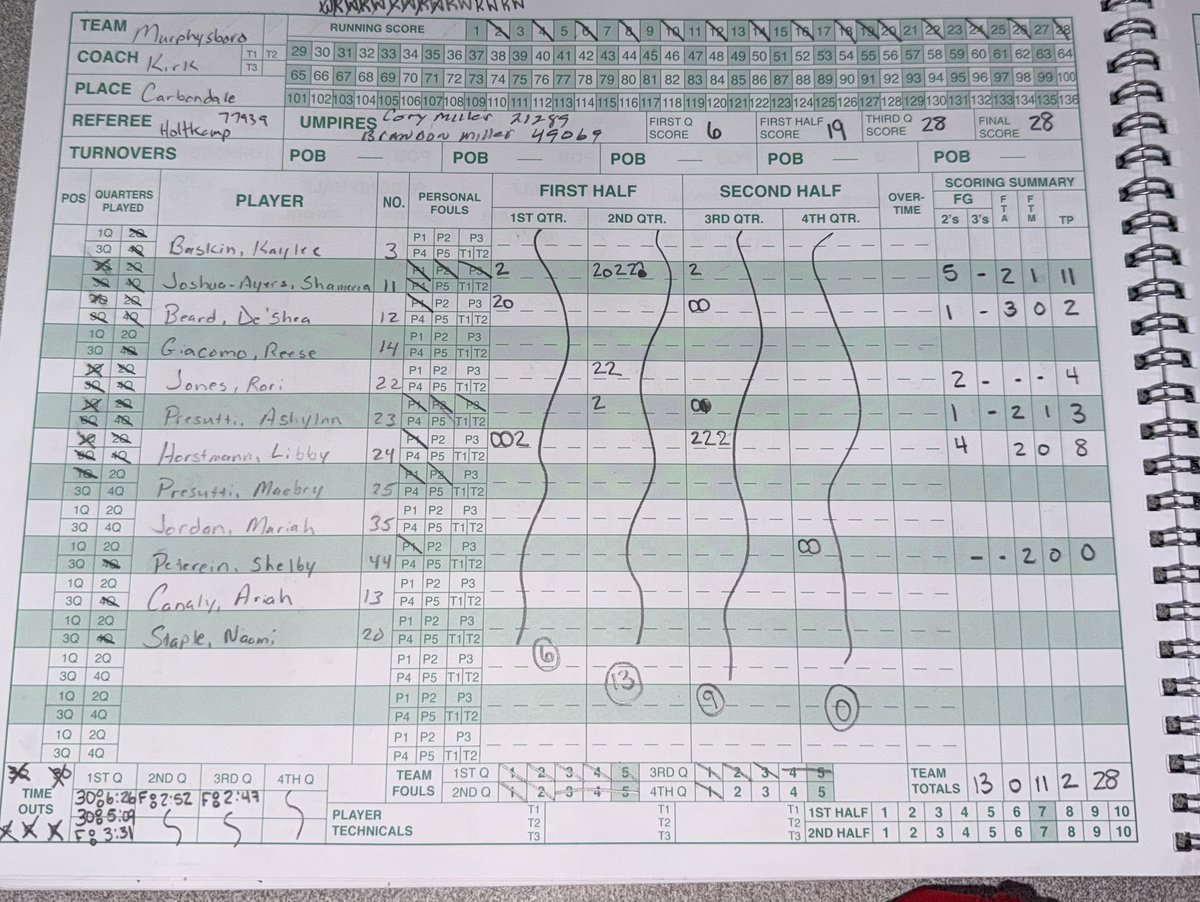 TEAM Murphysboro RUNNING SCORE 1 2 3 4 5 6 7 8 9 10 11 12 13 14 15 16 17 18 19 20 21 22 23 24 25 26 27 28
COACH Kirk T1 T2 T3 29 30 31 32 33 34 35 36 37 38 39 40 41 42 43 44 45 46 47 48 49 50 51 52 53 54 55 56 57 58 59 60 61 62 63 64
65 66 67 68 69 70 71 72 73 74 75 76 77 78 79 80 81 82 83 84 85 86 87 88 89 90 91 92 93 94 95 96 97 98 99 100
PLACE Carbondale 101 102 103 104 105 106 107 108 109 110 111 112 113 114 115 116 117 118 119 120 121 122 123 124 125 126 127 128 129 130 131 132 133 134 135 136
REFEREE Holtkamp 77939 UMPIRES Cory Miller 21289 FIRST Q SCORE 6 FIRST HALF SCORE 19 THIRD Q SCORE 28 FINAL SCORE 28
Brandon Miller 49069
TURNOVERS POB — POB — POB — POB — POB —
POS QUARTERS PLAYED PLAYER NO. PERSONAL FOULS FIRST HALF SECOND HALF OVER-TIME SCORING SUMMARY
1ST QTR. 2ND QTR. 3RD QTR. 4TH QTR. FG 2's 3's FTA FTM TP
1Q 2Q P1 P2 P3
3Q 4Q Baskin, Kaylee 3 P4 P5 T1 T2
1Q 2Q P1 P2 P3 2 2 5 - 2 1 11
3Q 4Q Joshua-Ayers, Shameria 11 P4 P5 T1 T2
1Q 2Q P1 P2 P3 20 00 1 - 3 0 2
3Q 4Q Beard, De'Shea 12 P4 P5 T1 T2
1Q 2Q P1 P2 P3
3Q 4Q Giacomo, Reese 14 P4 P5 T1 T2
1Q 2Q P1 P2 P3 22 2 - - - 4
3Q 4Q Jones, Rori 22 P4 P5 T1 T2
1Q 2Q P1 P2 P3 2 1 - 2 1 3
3Q 4Q Presutti, Ashylnn 23 P4 P5 T1 T2
1Q 2Q P1 P2 P3 002 222 4 2 0 8
3Q 4Q Horstmann, Libby 24 P4 P5 T1 T2
1Q 2Q P1 P2 P3
3Q 4Q Presutti, Maebry 25 P4 P5 T1 T2
1Q 2Q P1 P2 P3
3Q 4Q Jordan, Mariah 35 P4 P5 T1 T2
1Q 2Q P1 P2 P3 00 - - 2 0 0
3Q 4Q Peterein, Shelby 44 P4 P5 T1 T2
1Q 2Q P1 P2 P3
3Q 4Q Canaly, Ariah 13 P4 P5 T1 T2
1Q 2Q P1 P2 P3
3Q 4Q Staple, Naomi 20 P4 P5 T1 T2
1Q 2Q P1 P2 P3 6
3Q 4Q P4 P5 T1 T2 13
1Q 2Q P1 P2 P3 9 0
3Q 4Q P4 P5 T1 T2
1Q 2Q P1 P2 P3
3Q 4Q P4 P5 T1 T2
30 30 1ST Q 2ND Q 3RD Q 4TH Q TEAM FOULS 1ST Q 1 2 3 4 5 3RD Q 1 2 3 4 5 TEAM TOTALS 13 0 11 2 28
TIME OUTS 30@6:26 F@2:52 F@2:47 2ND Q 1 2 3 4 5 4TH Q 1 2 3 4 5
30@5:09 PLAYER TECHNICALS T1 T2 T3 T1 T2 T3 T1 T2 T3 1ST HALF 1 2 3 4 5 6 7 8 9 10
F@3:31 2ND HALF 1 2 3 4 5 6 7 8 9 10